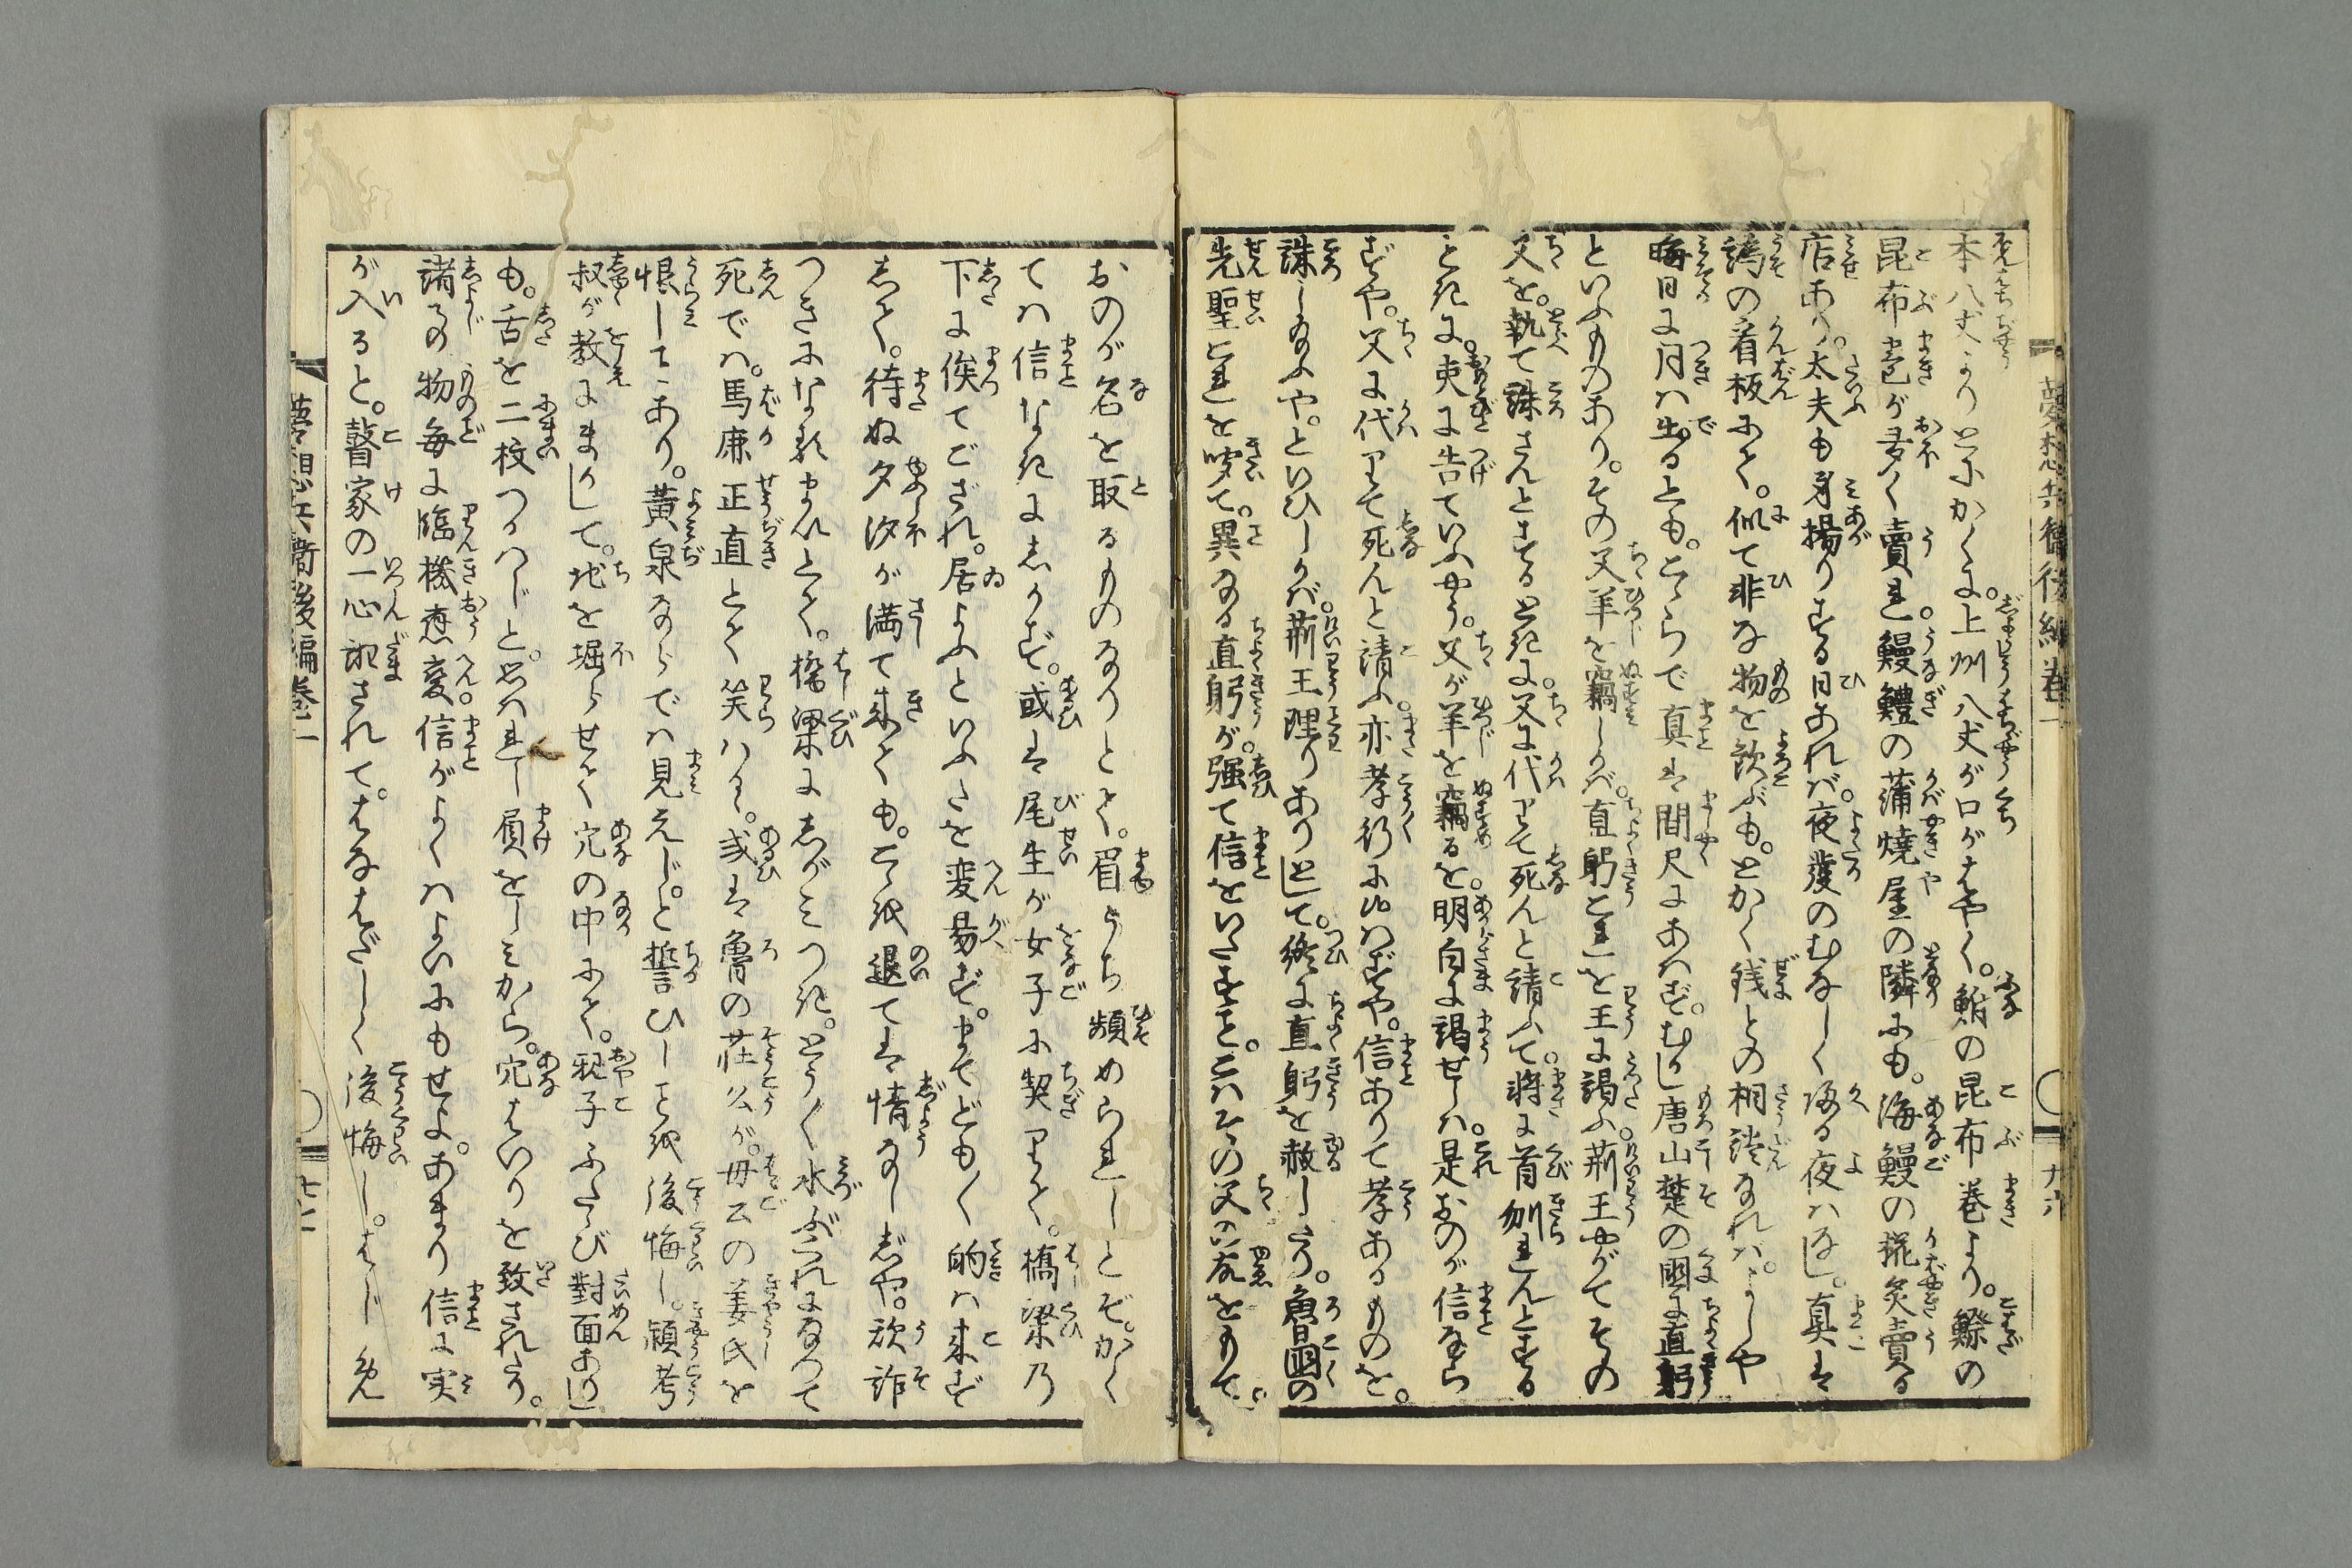 本八丈よりとにかくに。上州八丈が口がはやく。鮒の昆布巻より。鰶の
昆布巻が多く賣れ。鰻鱺の蒲燒屋の隣にも。海鰻の椛炙賣る
店あり。太夫も身揚りする日あれば。夜發のむなしく帰る夜はなし。真は
譌の看板にて。似て非な物を歓ぶも。とかく銭との相談なれば。よしや
晦日に月は出るとも。こゝらで真は間尺にあはず。むかし唐山楚の國に直躬
といふものあり。その父羊を竊しかば。直躬これを王に謁ふ。荊王やがてその
父を。執て誅さんとするときに。父に代りて死んと請ふて。將に首刎れんとする
ときに。吏に告ていふやう。父が羊を竊るを。明白に謁せしは。是おのが信なら
ずや。父に代りて死んと請ふ。亦孝行に候はずや。信ありて孝あるものを。
誅し給ふや。といひしかば。荊王理りありとして。終に直躬を赦しけり。魯國の
先聖これを嘆て。異なる直躬が。强て信をいたすこと。こはその父の故をもて。
おのが名を取るものなりとて。眉うち顰められしとぞ。かく
ては信なきにしかず。或は尾生が女子に契りて。橋梁乃
下に俟てござれ。居よふといふたを変易ず。まてどもく的は来ず
して。待ぬ夕汐が満て来ても。こゝを退ては情なしじや。欺詐
つきになるまいとて。橋梁にしがみつき。とうく水ぶくれになつて
死では。馬廉正直とて笑はるゝ。或は魯の荘公が。母公の姜氏を
恨しことあり。黃泉ならでは見えじ。と誓ひしことを後悔し。穎考
叔が教にまかして。地を堀らせて穴の中にて。親子ふたゝび對面あり。
も。舌を二枚つかはじと。思はれし屓をしみから。穴はいりを致されたり。
諸事の物毎に臨機應変。信がよくはよいにもせよ。あまり信に実
が入ると。瞽家の一心訛されて。はなはだしく後悔し。はじ免
夢想兵衛後編巻二